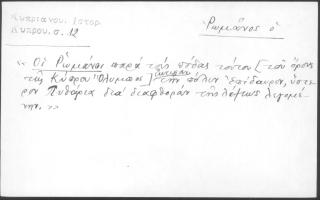 Κυπριανοῦ. Ἱστορ.
Κύπρου. σ. 12
Ῥωμᾶνος ὁ
« Οἱ Ῥωμᾶνοι παρὰ τοὺς πόδας τούτου [τοῦ ὄρους
τῆς Κύπρου Ὀλύμπου] τὴν πόλιν Ἐπίδαυρον, ὕστε-
ρον Πυθάρια διὰ διαφθορὰν τῆς λέξεως λεγομέ-
νην. »